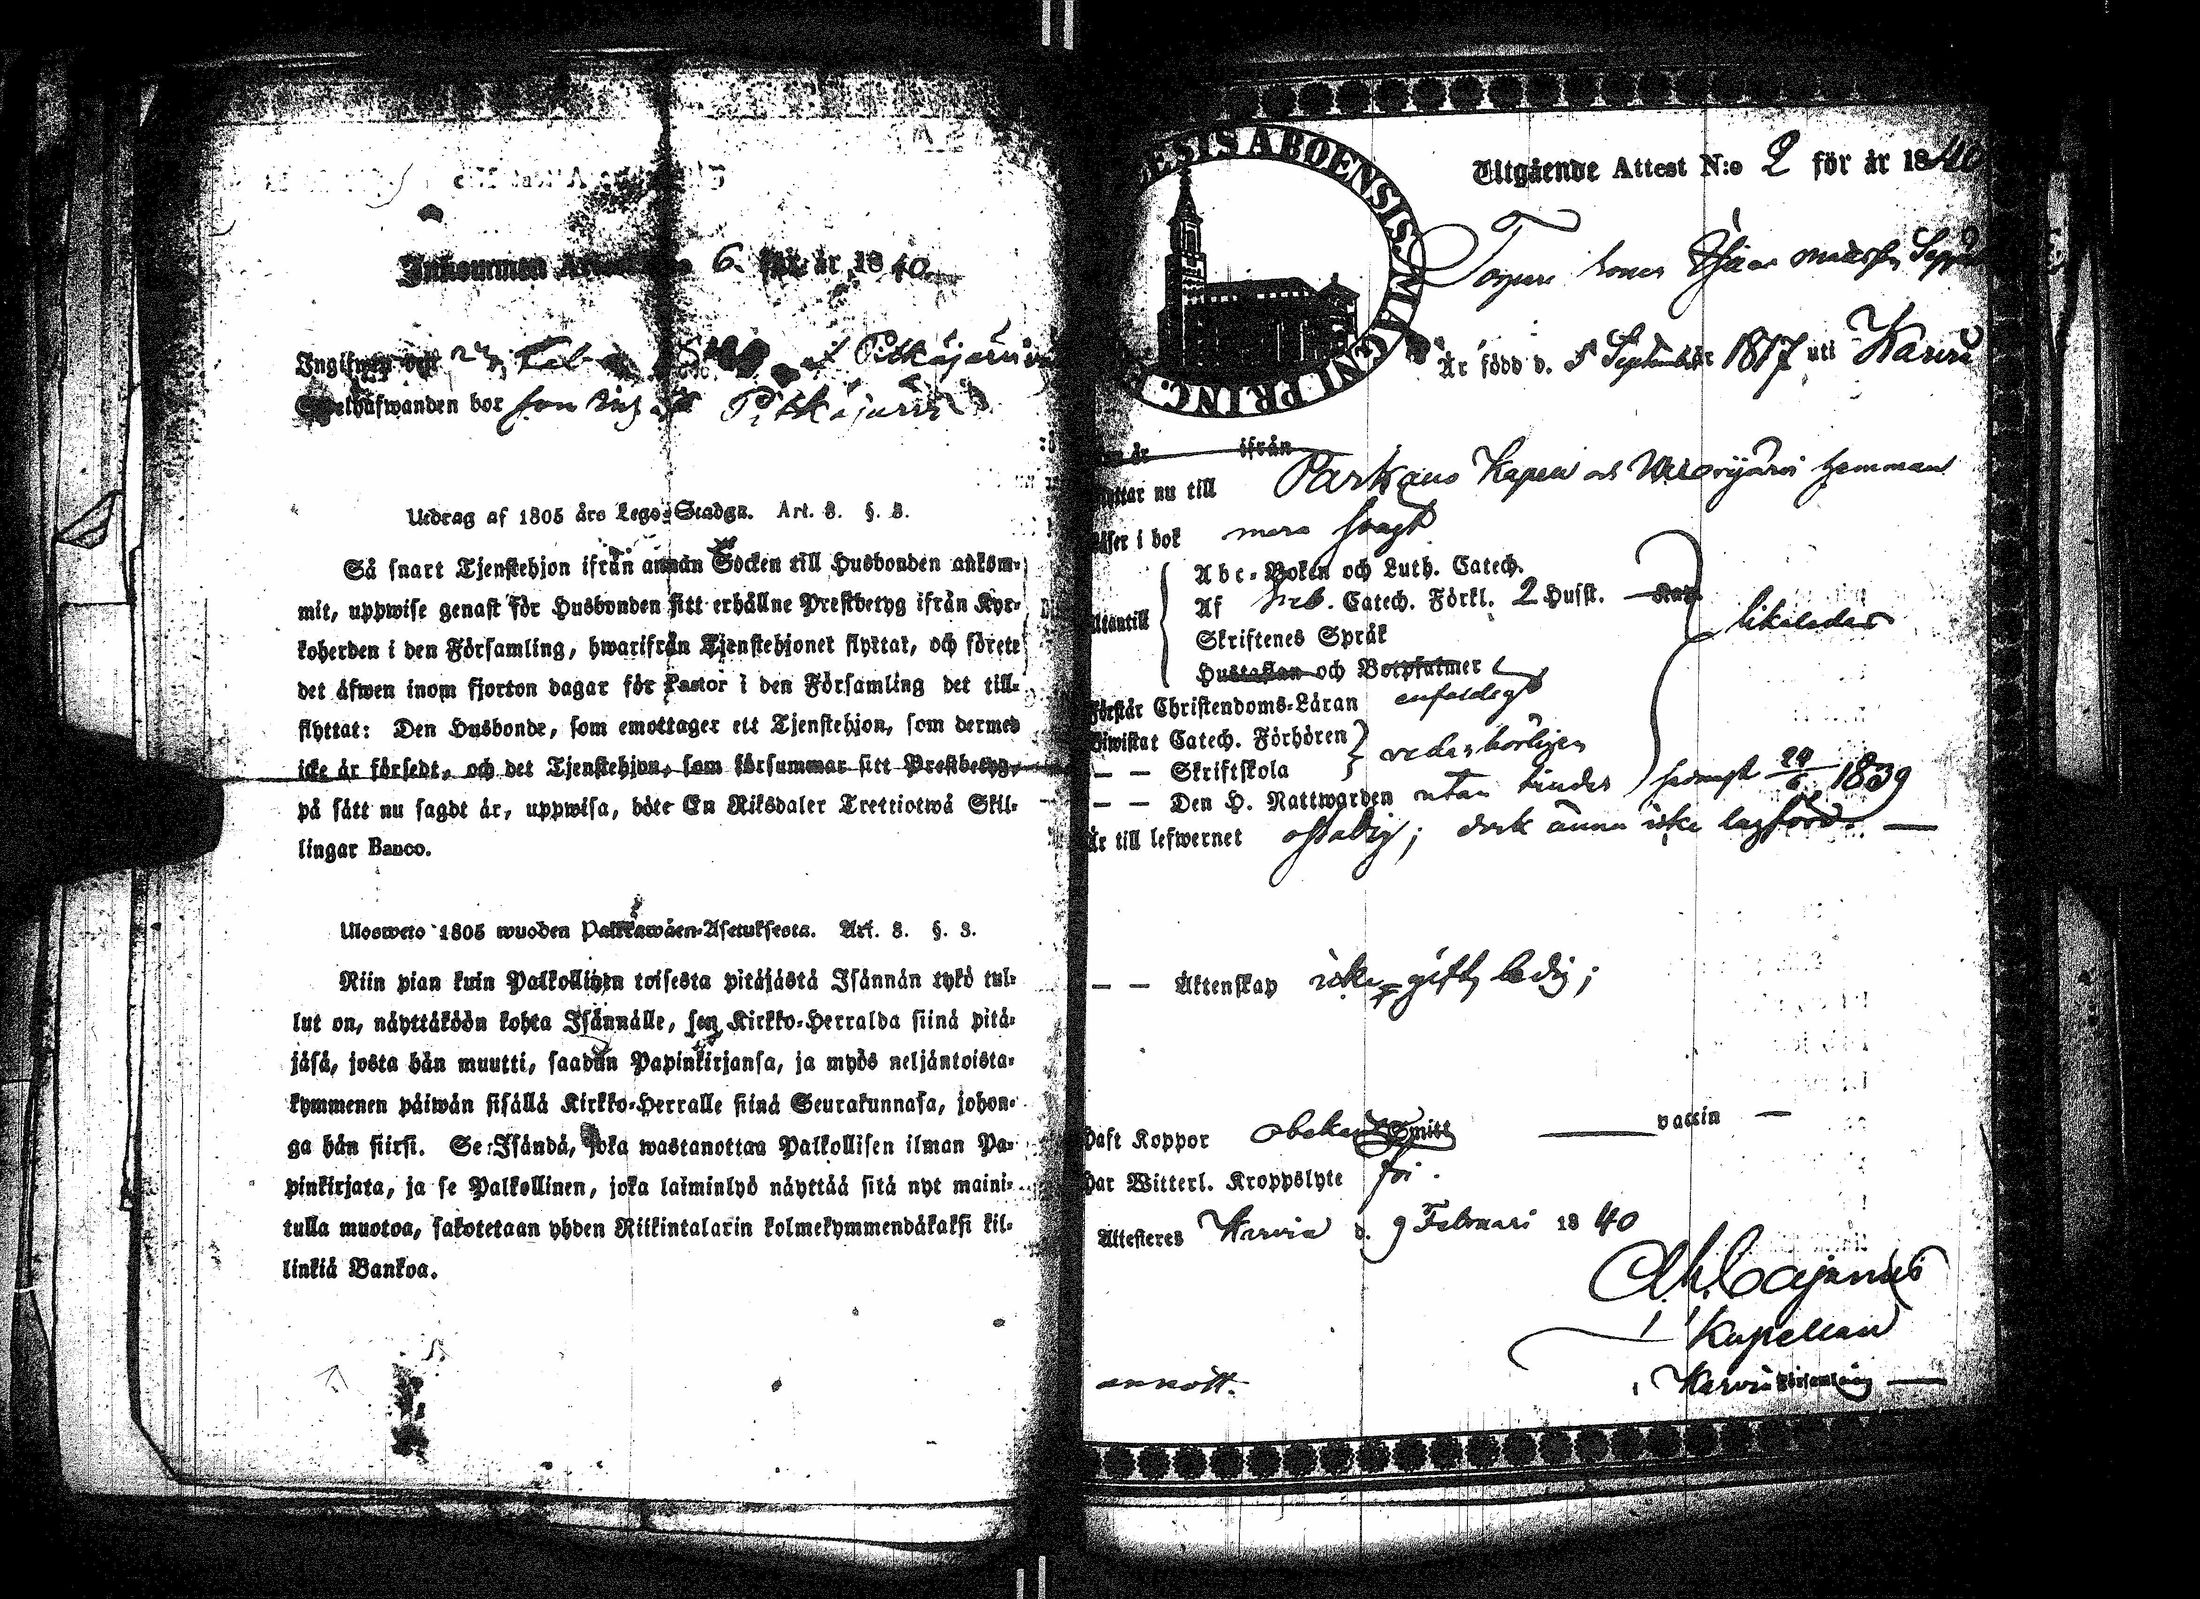 6. för år 1840.
Pitkäjärvi
bor Pitkäjärvi
Utdrag af 1805 års Lego-Stadgn. Art. 3. §. 3.
Så snart Tjenstehjon ifrån annan Socken till Husbonden ankom-
mit, uppwise genast för Husbonden sitt erhållne Prestbetyg ifrån Kyr-
koherden i den Församling, hwarifrån Tjenstehjonet flyttat, och förete
det äfwen inom fjorton dagar för Pastor i den Församling det till-
flyttat: Den Husbonde, som emottager ett Tjenstehjon, som dermed
icke är försedt, och det Tjenstehjon, som försummar sitt Prestbetyg,
på sätt nu sagdt är, uppwisa, böte En Riksdaler Trettiotwå Skil-
lingar Banco.
Ulosweto 1805 wuoden Palkkawäen-Asetuksesta. Art. 3. §. 3.
Niin pian kuin Palkollinen toisesta pitäjästä Isännän tykö tul-
lut on, näyttäköön kohta Isännälle, sen Kirkko-Herralda siinä pitä-
jäsä, josta hän muutti, saadun Papinkirjansa, ja myös neljäntoista-
kymmenen päiwän sisällä Kirkko-Herralle siinä Seurakunnasa, johon-
ga hän siirsi. Se Isändä, joka wastanottaa Palkollisen ilman Pa-
pinkirjata, ja se Palkollinen, joka laiminlyö näyttää sitä nyt maini-
tulla muotoa, sakotetaan yhden Riikintalarin kolmekymmendäkaksi kil-
linkiä Bankoa.
ESIS ABOENSIS. MAGNI PRINC.
Utgående Attest N:o 2 för år 1840
Är född d. 5 September 1817 uti
ifrån
nu till Parkano Kapell och hemman
i bok mera svagt
Utantill
Abc-Boken och Luth. Catech.
Af Catech. Förkl. 2 Husst.
Skriftenes Språk
Hustaflan och Botpsalmer
likaledes
Förstår Christendoms-Läran enfaldigt
Catech. Förhören
— — Skriftskola
vederbörligen
— — Den H. Nattwarden utan hinder senast 24/6 1839
Är till lefwernet ostadig; dock ännu icke lagförd. —
— — Äktenskap icke gift, ledig;
Haft Koppor obekant Smitt vaccin —
Har Witterl. Kroppslyte fri.
Attesteres Karvia d. 9 Februari 1840
Cajanus
Kapellan
i Karvia Församling